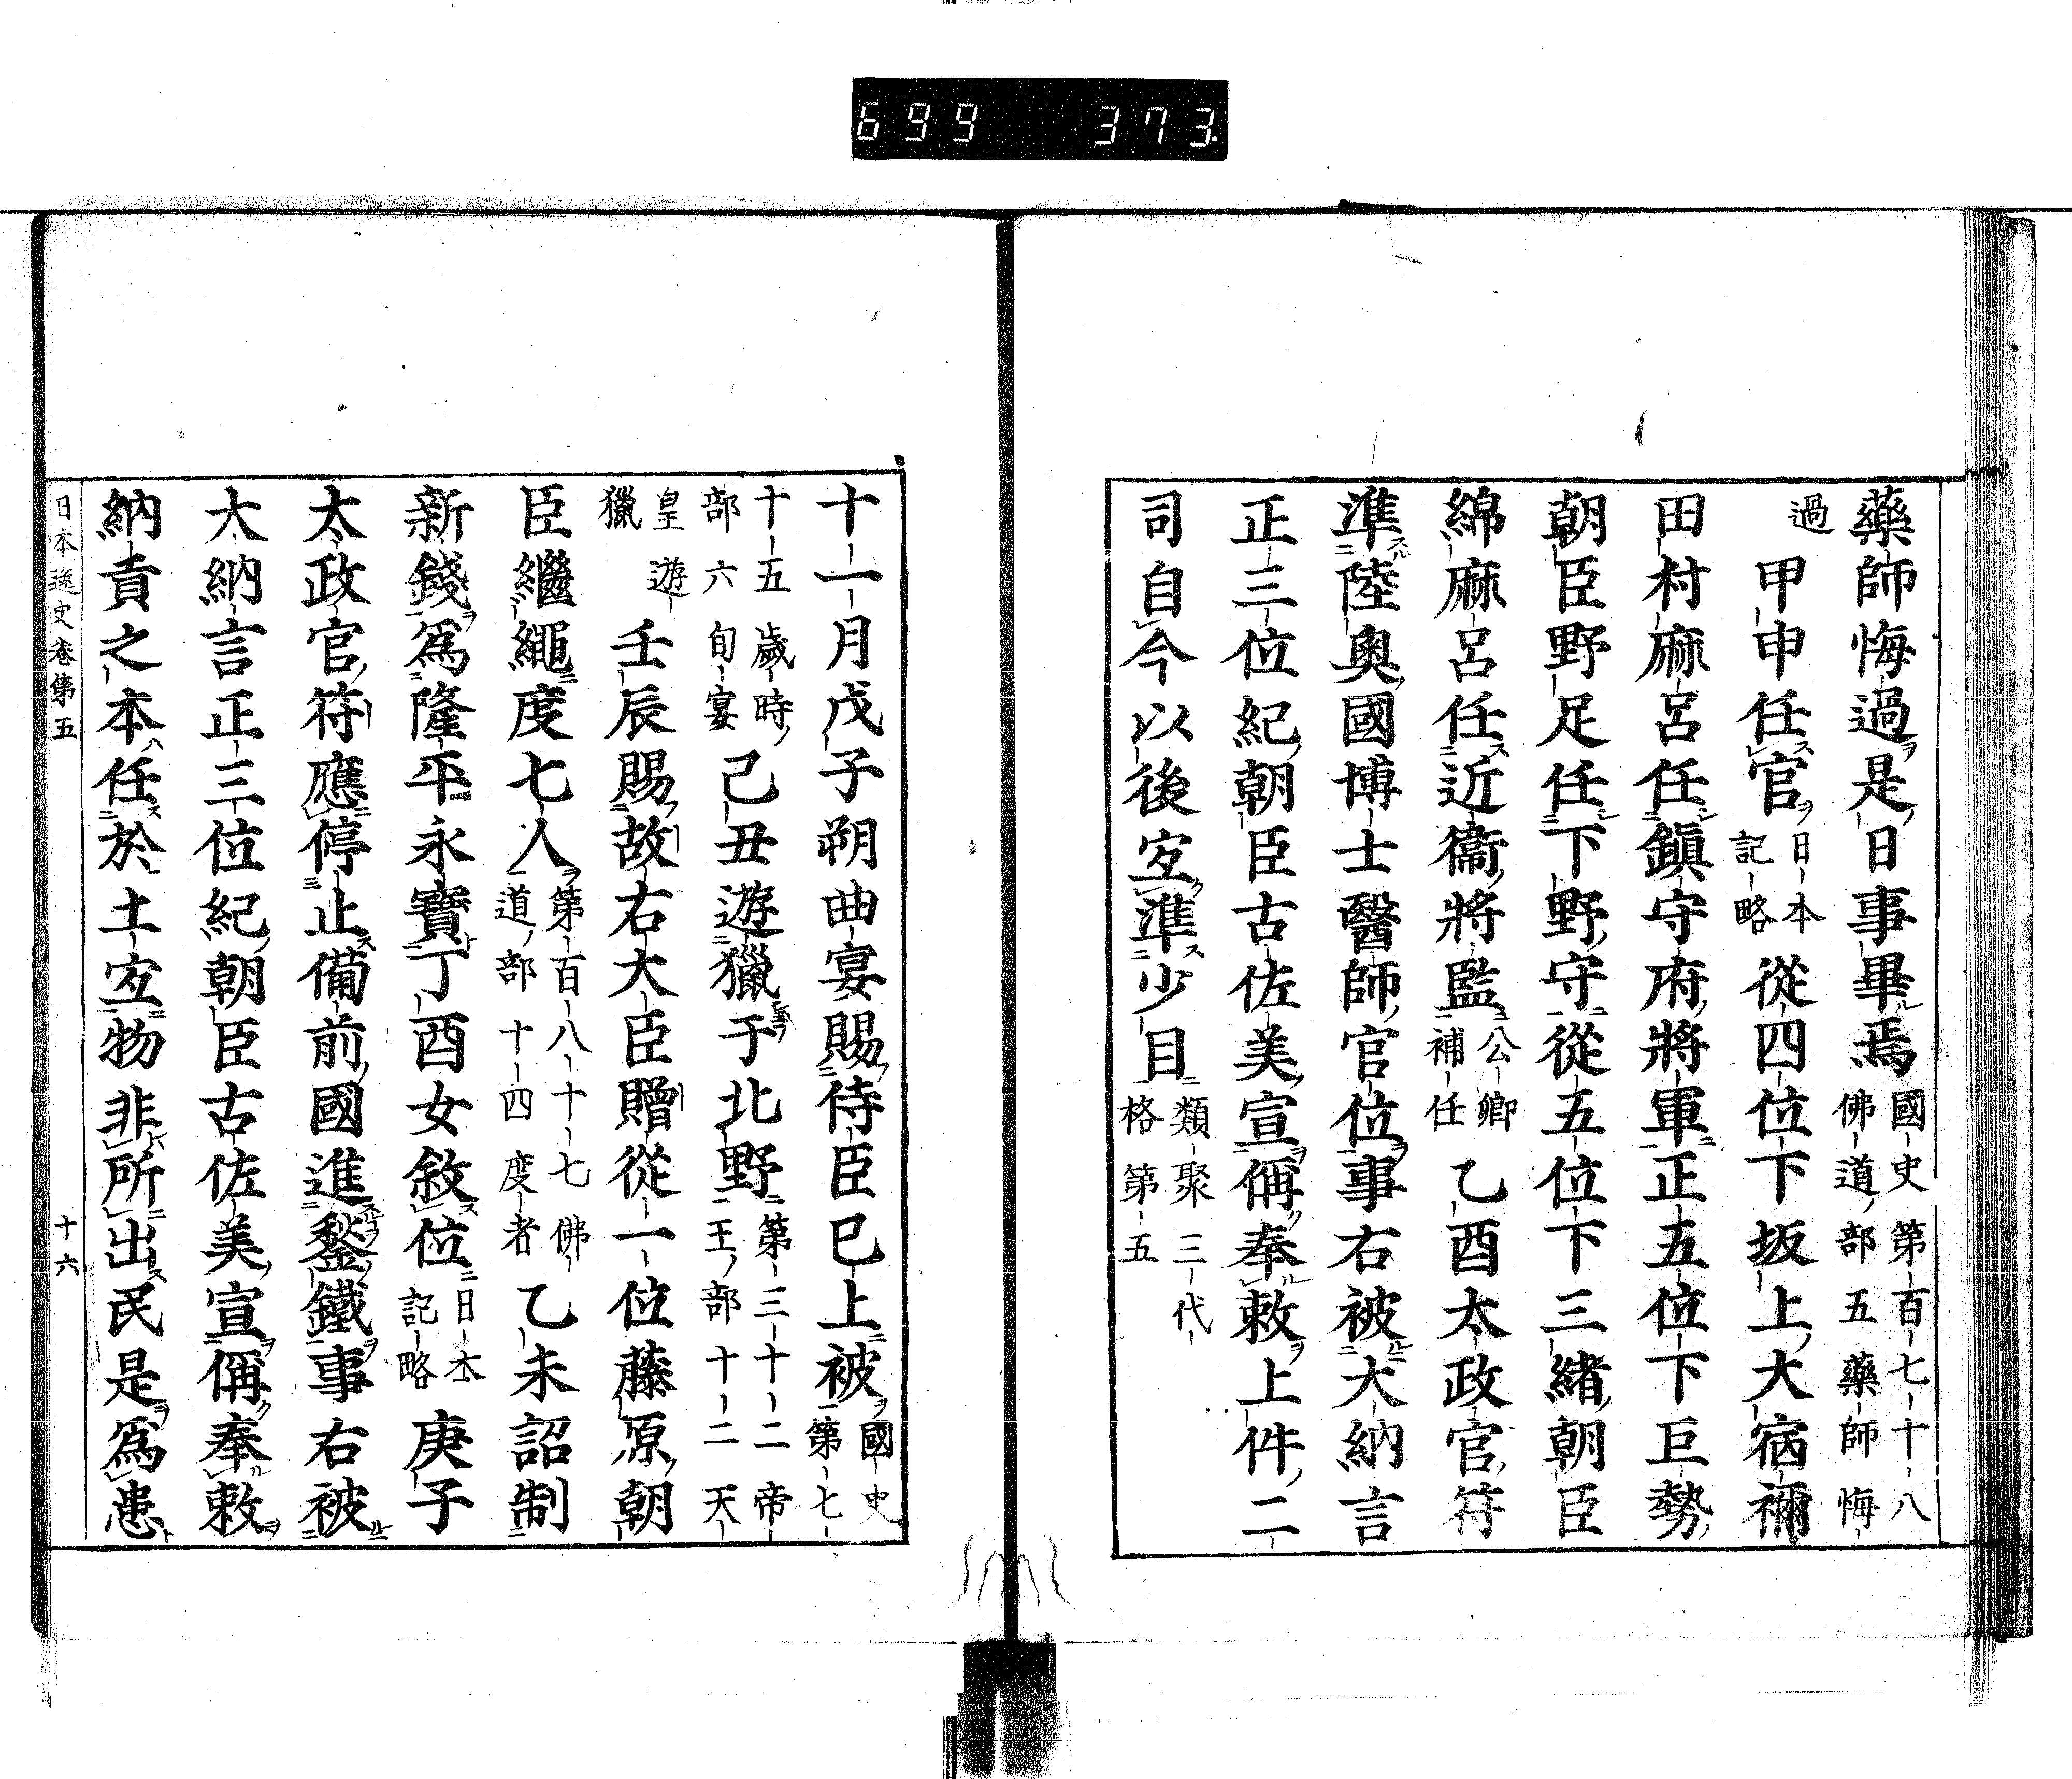 699 373.
藥師悔過是日事畢焉國史第百七十八佛道部五藥師悔
過甲申任官日本記略從四位下坂上大宿禰
田村麻呂任鎭守府將軍正五位下巨勢
朝臣野足任下野守從五位下三緒朝臣
綿麻呂任近衞將監公卿補任乙酉太政官符
準陸奧國博士醫師官位事右被大納言
正三位紀朝臣古佐美宣偁奉敕上件二
司自今以後宐準少目類聚三代格第五
十一月戊子朔曲宴賜侍臣已上被國史第七
十五歲時部六旬宴己丑遊獵于北野第三十二帝王部十二天
皇遊獵壬辰賜故右大臣贈從一位藤原朝
臣繼繩度七人第百八十七佛道部十四度者乙未詔制
新錢爲隆平永寶丁酉女敘位日本記略庚子
太政官符應停止備前國進鍫鐵事右被
大納言正三位紀朝臣古佐美宣偁奉敕
納貢之本任於土宐物非所出民是爲患
日本逸史卷第五 十六